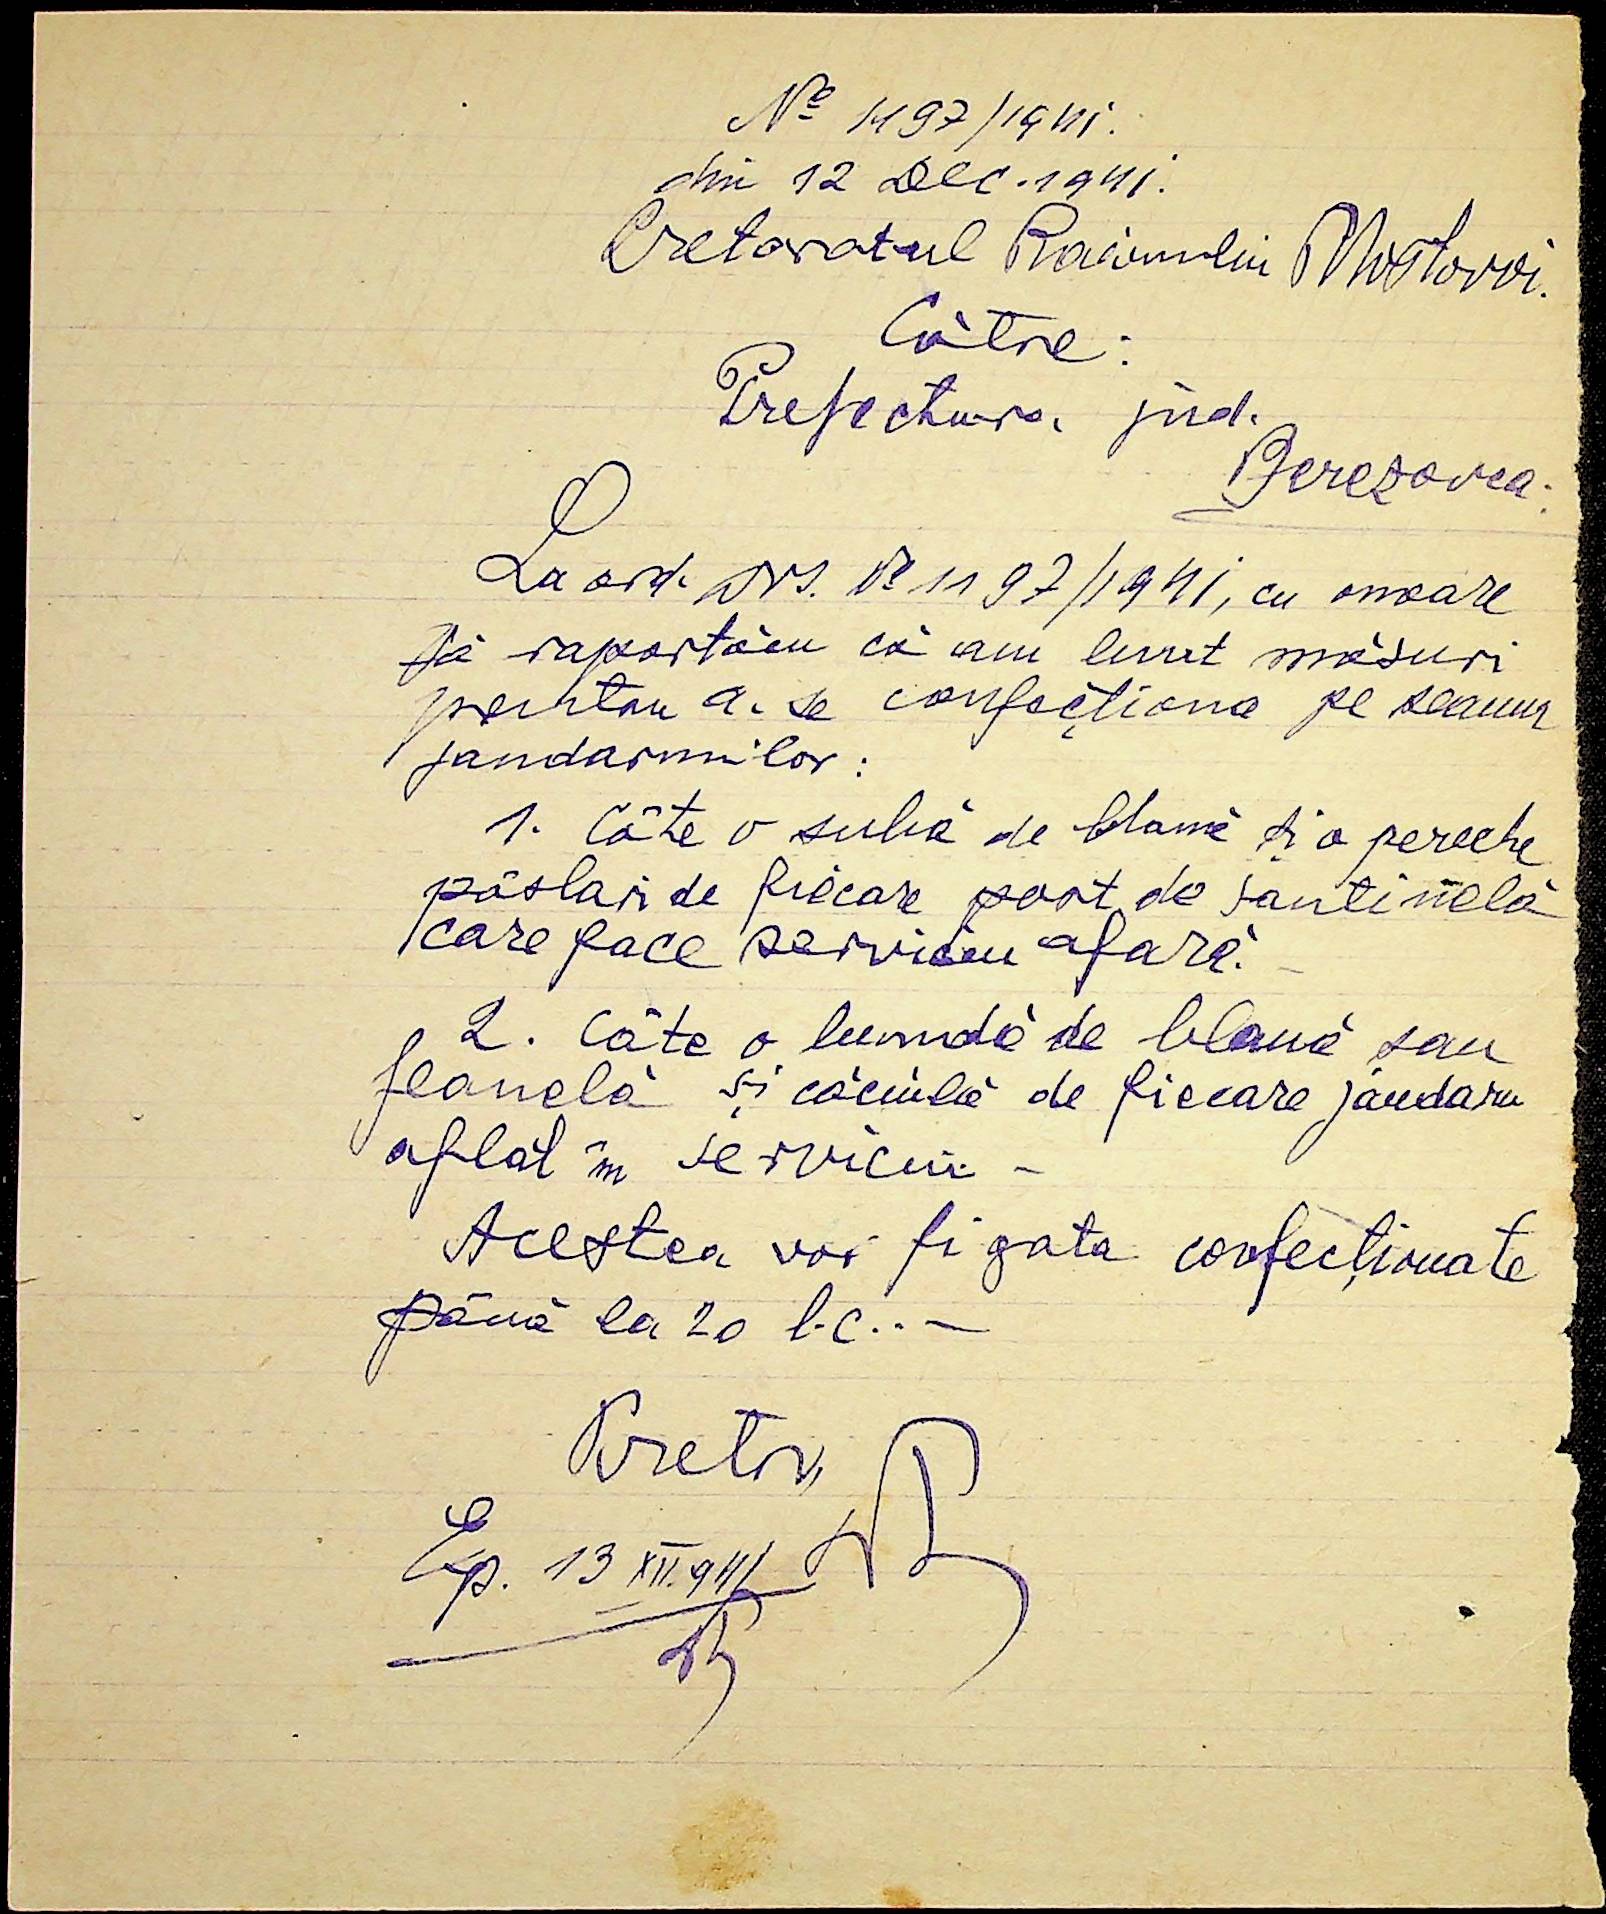 Nº 1197/1941.
din 12 Dec. 1941.
Pretoratul Raionului Mostovoi.
Către:
Prefectura jud.
Berezovca.
La ord. Dvs. Nº 1197/1941, cu onoare
să raportăm că am luat măsuri
pentru a se confecționa pe seama
jandarmilor:
1. Câte o șubă de blană și o pereche
pâslari de fiecare post de santinelă
care face serviciu afară. -
2. Câte o bundă de blană sau
flanelă și căciulă de fiecare jandarm
aflat în serviciu -
Acestea vor fi gata confecționate
până la 20 l.c.. -
Pretor,
Exp. 13 XII.941